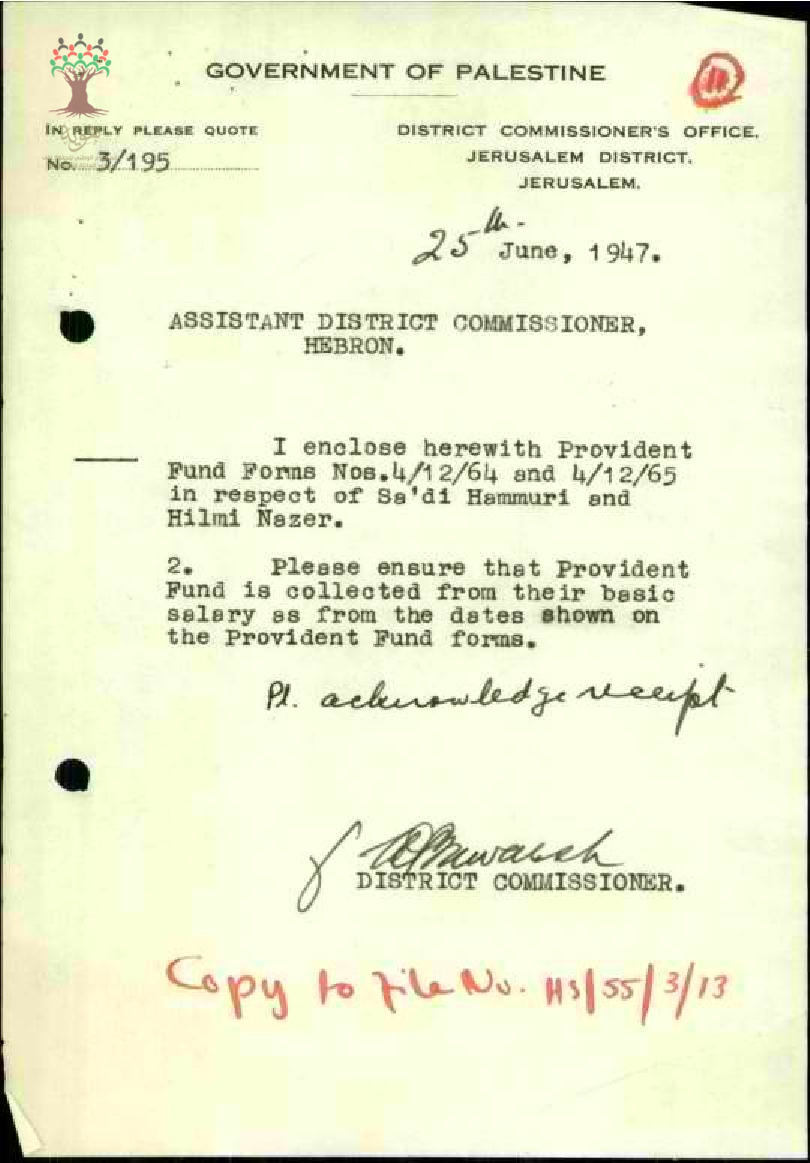 GOVERNMENT OF PALESTINE
IN REPLY PLEASE QUOTE
No. 3/195
DISTRICT COMMISSIONER'S OFFICE.
JERUSALEM DISTRICT.
JERUSALEM.
25th June, 1947.
ASSISTANT DISTRICT COMMISSIONER,
HEBRON.
I enclose herewith Provident
Fund Forms Nos.4/12/64 and 4/12/65
in respect of Sa'di Hammuri and
Hilmi Nazer.
2. Please ensure that Provident
Fund is collected from their basic
salary as from the dates shown on
the Provident Fund forms.
Pl. acknowledge receipt
DISTRICT COMMISSIONER.
Copy to File No. H3/55/3/13